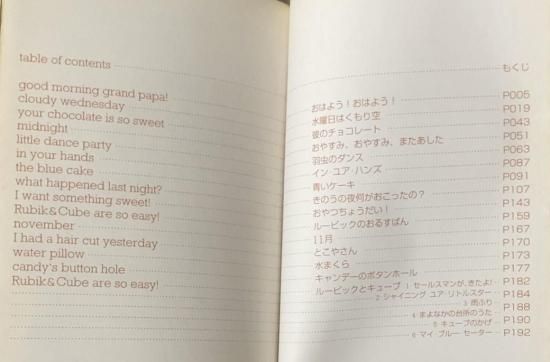 table of contents
good morning grand papa!
cloudy wednesday
your chocolate is so sweet
midnight
little dance party
in your hands
the blue cake
what happened last night?
I want something sweet!
Rubik&Cube are so easy!
november
I had a hair cut yesterday
water pillow
candy's button hole
Rubik&Cube are so easy!
もくじ
おはよう!おはよう! P005
水曜日はくもり空 P019
彼のチョコレート P043
おやすみ、おやすみ、またあした P051
羽虫のダンス P063
イン・ユア・ハンズ P087
青いケーキ P091
きのうの夜何がおこったの? P107
おやつちょうだい! P143
ルービックのおるすばん P159
11月 P167
とこやさん P170
水まくら P173
キャンデーのボタンホール P177
ルービックとキューブ 1 セールスマンが、きたよ! P182
2 シャイニング ユア リトルスター P184
3 雨ふり P188
4 まよなかの台所のうた P190
5 キューブのかげ P192
6 マイ ブルー セーター